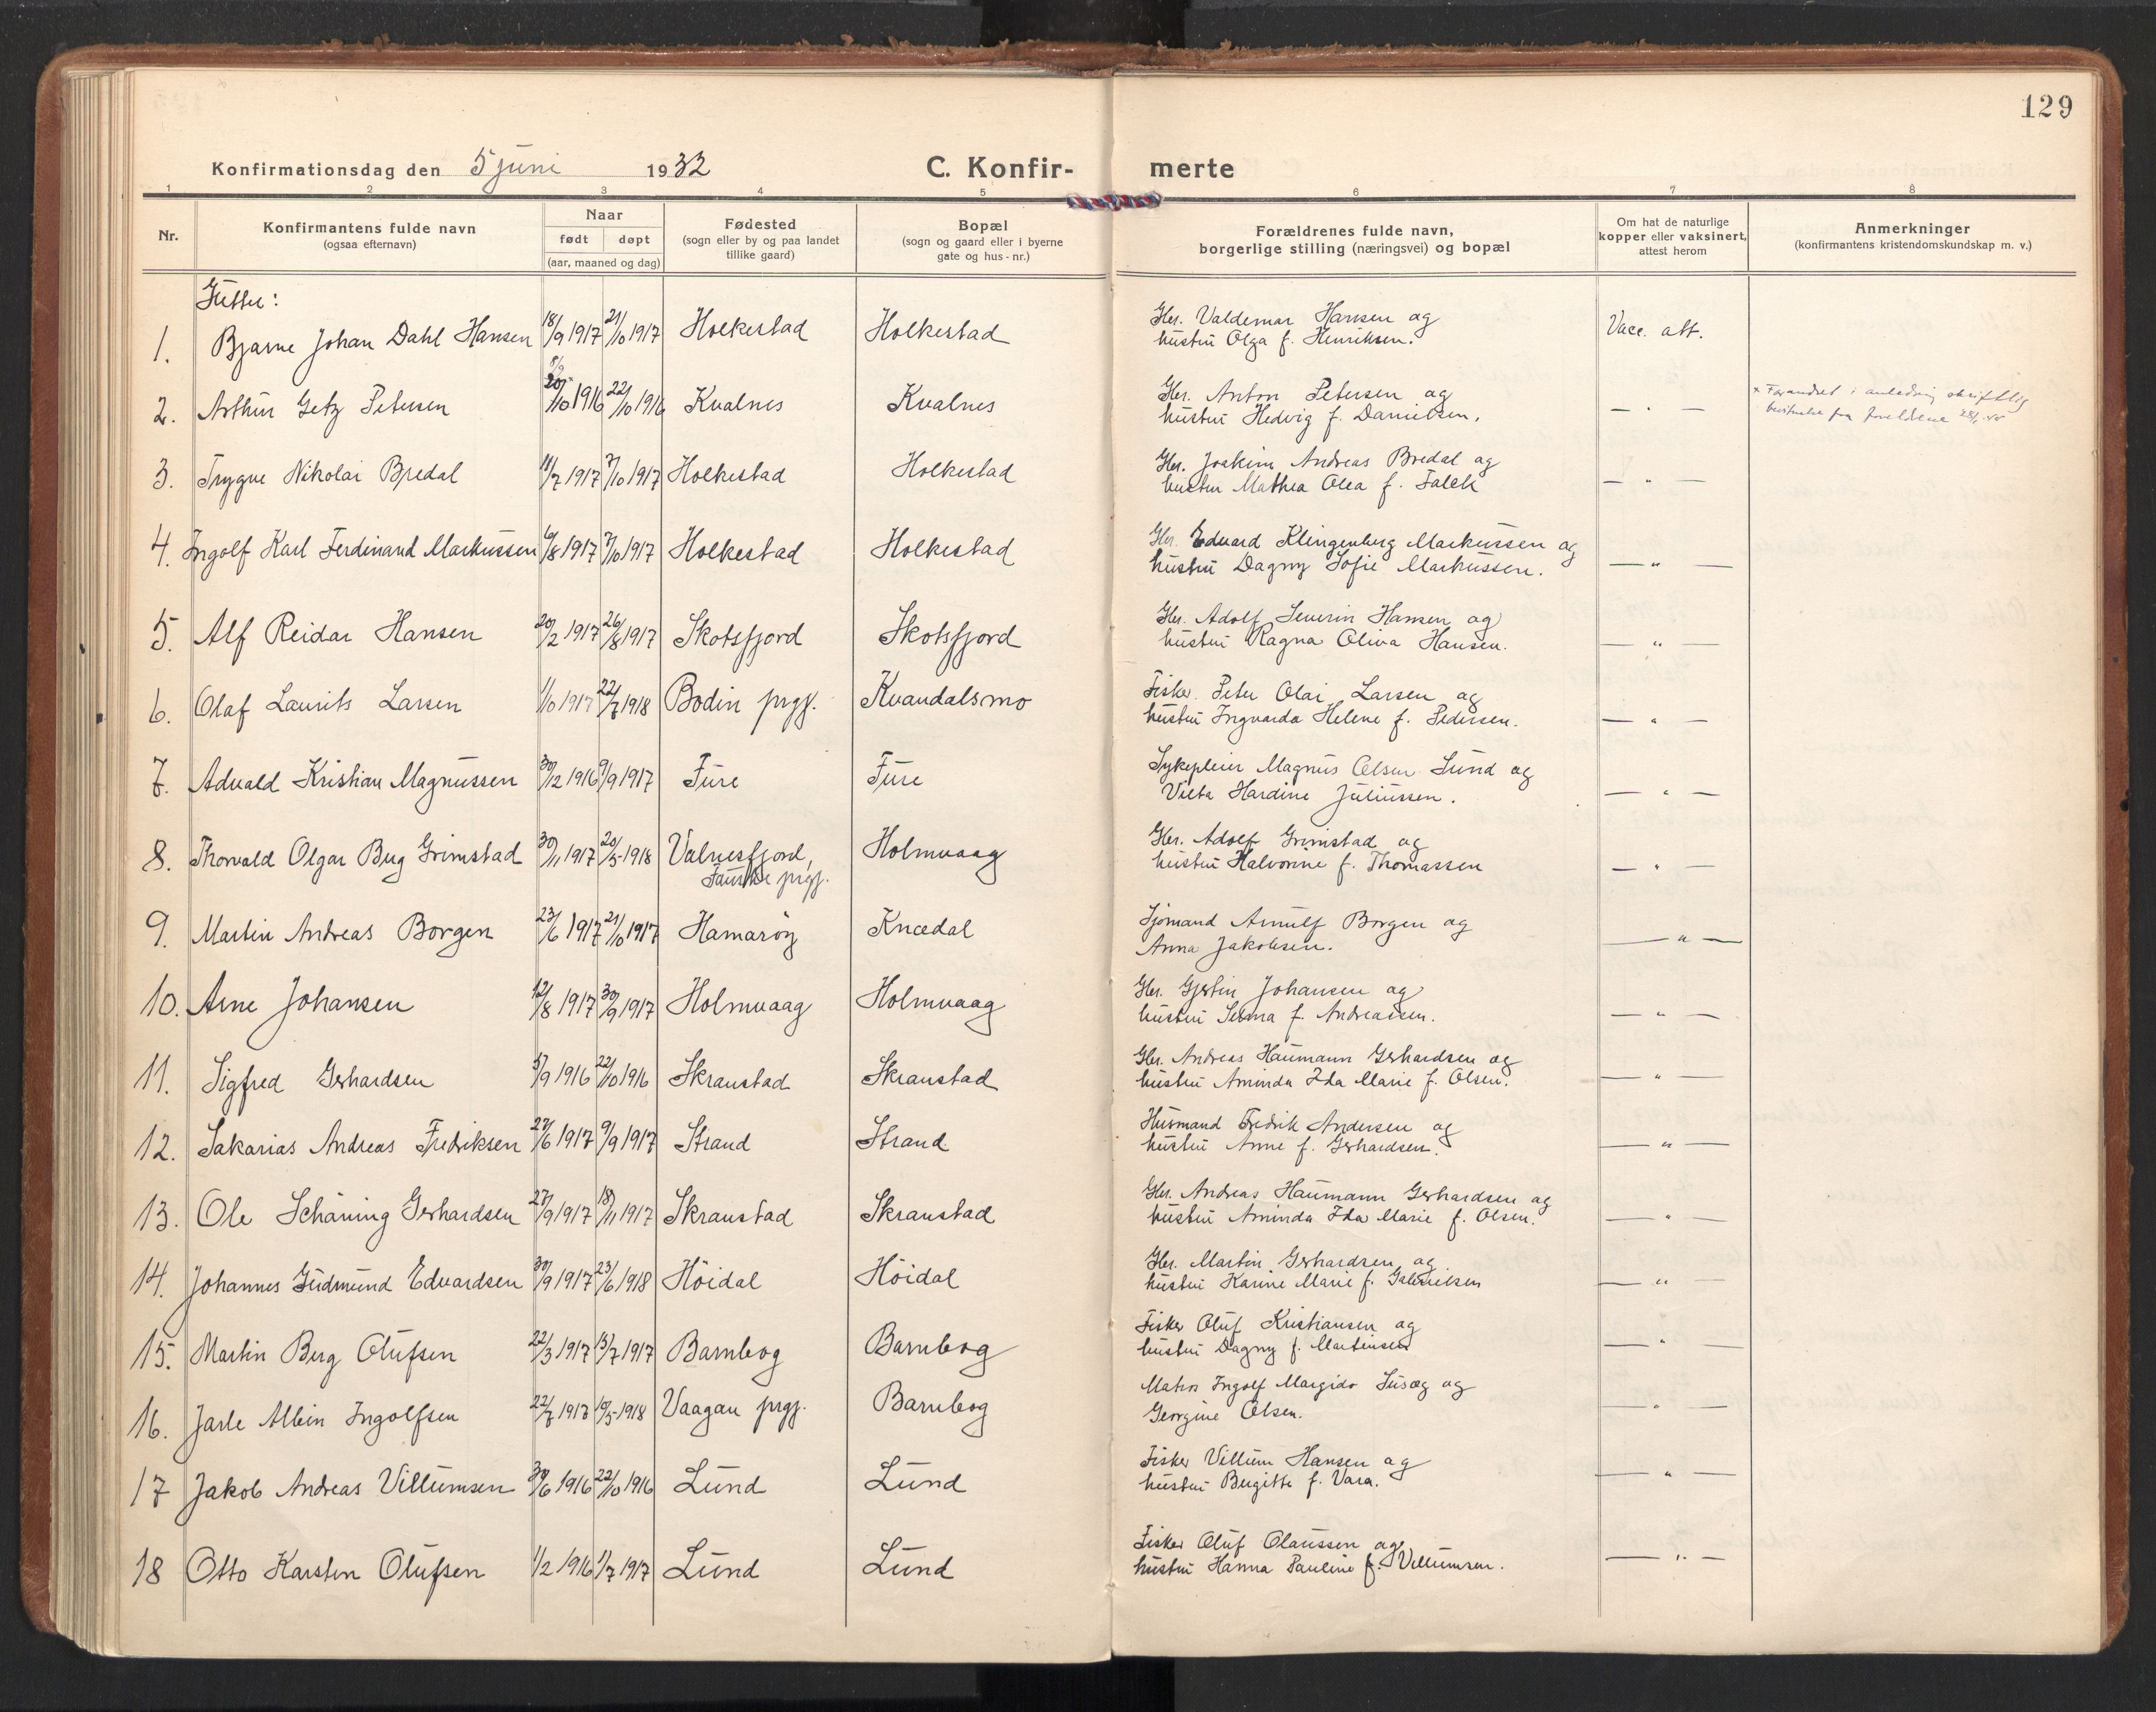 129
Konfirmationsdag den 5 juni 1932
C. Konfir-
merte
1 2 3 4 5 6 7 8
Nr.
Konfirmantens fulde navn
(ogsaa efternavn)
Naar
født døpt
(aar, maaned og dag)
Fødested
(sogn eller by og paa landet
tillike gaard)
Bopæl
(sogn og gaard eller i byerne
gate og hus-nr.)
Forældrenes fulde navn,
borgerlige stilling (næringsvei) og bopæl
Om hat de naturlige
kopper eller vaksinert,
attest herom
Anmerkninger
(konfirmantens kristendomskundskap m. v.)
Gutter:
1. Bjarne Johan Dahl Hansen 18/9 1917 21/10 1917 Holkestad Holkestad
Gbr. Valdemar Hansen og
hustru Olga f. Henriksen.
Vacc. att.
2. Arthur Getz Petersen 1916 22/10 1916 Kvalnes Kvalnes
Gbr. Anton Petersen og
hustru Hedvig f. Danielsen.
— " —
× Forandret i anledning skriftlig
fra foreldrene
3. Trygve Nikolai Bredal 11/7 1917 7/10 1917 Holkestad Holkestad
Gbr. Joakim Andreas Bredal og
hustru Mathea Olea f. Falch
— " —
4. Ingolf Karl Ferdinand Markussen 6/8 1917 7/10 1917 Holkestad Holkestad
Gbr. Edvard Klingenberg Markussen og
hustru Dagny Sofie Markussen.
— " —
5. Alf Reidar Hansen 20/2 1917 26/8 1917 Skotsfjord Skotsfjord
Gbr. Adolf Severin Hansen og
hustru Ragna Oliva Hansen.
— " —
6. Olaf Laurits Larsen 1/10 1917 22/7 1918 Bodin prgj. Kvandalsmo
Fisker Peter Olai Larsen og
hustru Ingvarda Helene f. Pedersen.
— " —
7. Advald Kristian Magnussen 30/12 1916 9/9 1917 Fure Fure
Sykepleier Magnus Olsen Lund og
Vilta Hardine Juliussen.
— " —
8. Thorvald Olgar Berg Grimstad 30/11 1917 20/5 1918 Valnesfjord, Holmvaag
Fauske prgj.
Gbr. Adolf Grimstad og
hustru Halvorine f. Thomassen
— " —
9. Martin Andreas Borgen 23/6 1917 21/10 1917 Hamarøy Knædal
Sjømand Arnulf Borgen og
Anna Jakobsen.
— " —
10. Arne Johansen 12/8 1917 30/9 1917 Holmvaag Holmvaag
Gbr. Gjertin Johansen og
hustru Selma f. Andreassen.
— " —
11. Sigfred Gerhardsen 5/9 1916 22/10 1916 Skranstad Skranstad
Gbr. Andreas Haumann Gerhardsen og
hustru Aminda Ida Marie f. Olsen.
— " —
12. Sakarias Andreas Fredriksen 27/6 1917 9/9 1917 Strand Strand
Husmand Fredrik Andersen og
hustru Anne f. Gerhardsen.
— " —
13. Ole Schäning Gerhardsen 27/9 1917 18/11 1917 Skranstad Skranstad
Gbr. Andreas Haumann Gerhardsen og
hustru Aminda Ida Marie f. Olsen.
— " —
14. Johannes Gudmund Edvardsen 30/9 1917 23/6 1918 Höidal Höidal
Gbr. Martin Gerhardsen og
hustru Karine Marie f. Gabrielsen
— " —
15. Martin Berg Olufsen 22/3 1917 15/7 1917 Barnbog Barnbog
Fisker Oluf Kristiansen og
hustru Dagny f. Martinsen
— " —
16. Jarle Albin Ingolfsen 22/7 1917 19/5 1918 Vaagan prgj. Barnbog
Matros Ingolf Margido Susæg og
Georgine Olsen.
— " —
17 Jakob Andreas Villumsen 30/6 1916 22/10 1916 Lund Lund
Fisker Villum Hansen og
hustru Bergitte f. Vara.
— " —
18 Otto Karsten Olufsen 1/2 1916 1/7 1917 Lund Lund
Fisker Oluf Olaussen og
hustru Hanna Pauline f. Villumsen.
— " —